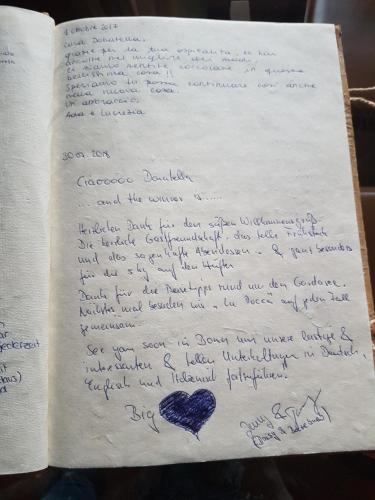 1 ottobre 2017
Cara Donatella,
grazie per la tua ospitalità, ci hai
accolte nel migliore dei modi.
Ci siamo sentite coccolate in questa
bellissima casa!!
Speriamo tu possa continuare così anche
nella nuova casa.
Un abbraccio,
Anna e Lucrezia
30.07.2018
Ciaooooo Donatella
... and the winner is ......
Herzlichen Dank für den süßen Willkommensgruß.
Die herzliche Gastfreundschaft, das tolle Frühstück
und das sagenhafte Abendessen & ganz besonders
für die 5 kg auf den Hüften
Danke für die Reisetipps rund um den Gardasee.
Nächstes mal besuchen wir "La Rocca" auf jeden Fall
gemeinsam.
See you soon in Bonn um unsere lustige &
interessanten & tollen Unterhaltungen in Deutsch,
Englisch und Italienisch fortzuführen.
Big
Jenny &